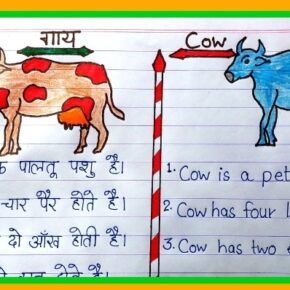 गाय
पालतू पशु है।
चार पैर होते है।
दो आँख होती है।
Cow
1. Cow is a pet
Cow has four
3. Cow has two